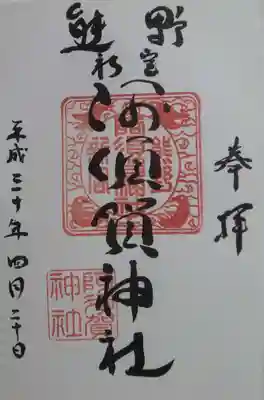 奉拝
熊野
新宮
阿須賀神社
平成三十年四月二十日
阿須賀
神社